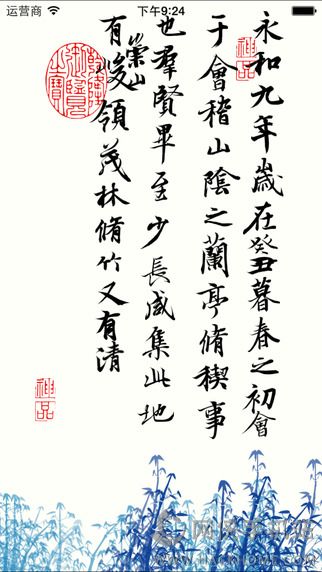 运营商
下午9:24
永和九年歲在癸丑暮春之初會
于會稽山陰之蘭亭脩稧事
也羣賢畢至少長咸集此地
有崇山峻領茂林脩竹又有清
神品
神品